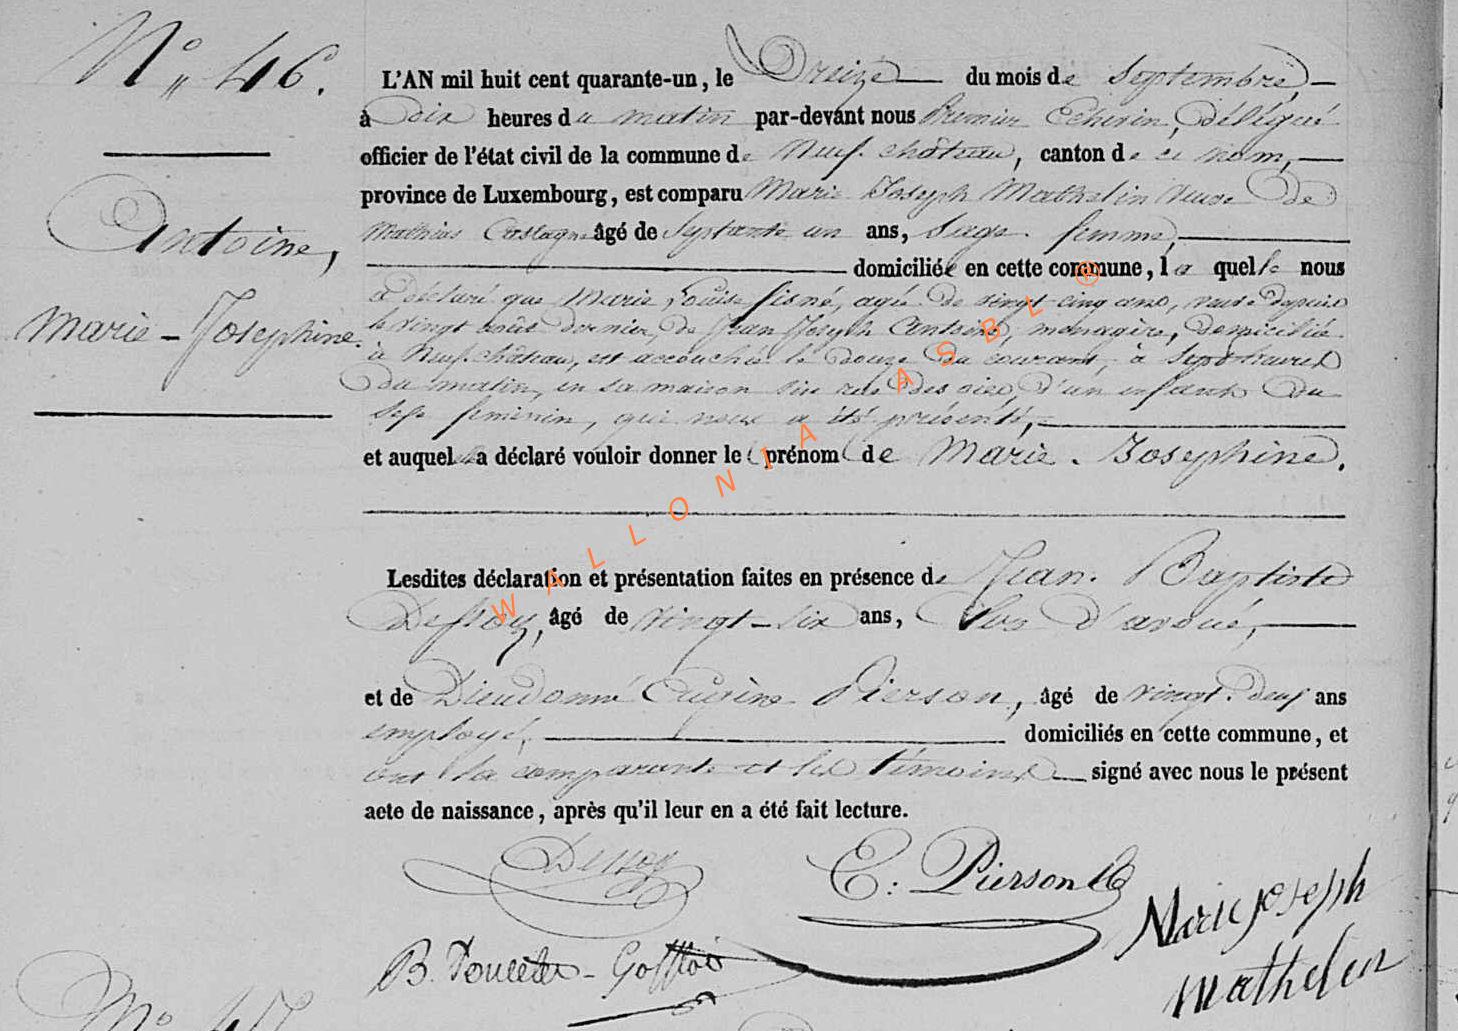 N° 46.
Antoine,
Marie-Josephine.
L'AN mil huit cent quarante-un, le Treize du mois de Septembre,
à dix heures du matin par-devant nous Premier Echevin, délégué
officier de l'état civil de la commune de Neufchâteau, canton de ce nom,
province de Luxembourg, est comparu Marie Joseph Mathelin veuve de
Mathias Castagne âgé de Septante un ans, Sage femme,
domiciliée en cette commune, laquelle nous
a déclaré que Marie Louise agée de vingt cinq ans, veuve depuis
le vingt août dernier, de Jean Joseph Antoine, ménagère, domiciliée
à Neufchâteau, est accouchée le douze du courant, à Sept heures
du matin, en sa maison rue des d'un enfant du
sexe feminin, qui nous a été présenté,
et auquel elle a déclaré vouloir donner le prénom de Marie-Josephine.
Lesdites déclaration et présentation faites en présence de Jean Baptiste
Dessoy, âgé de vingt-six ans, Clerc d'avoué,
et de Dieudonné Eugène Pierson, âgé de vingt-deux ans
employé, domiciliés en cette commune, et
ont la comparante et les témoins signé avec nous le présent
acte de naissance, après qu'il leur en a été fait lecture.
Dessoy
E: Pierson
Marie joseph
mathelin
B.
N° 47
WALLONIA ASBL ®